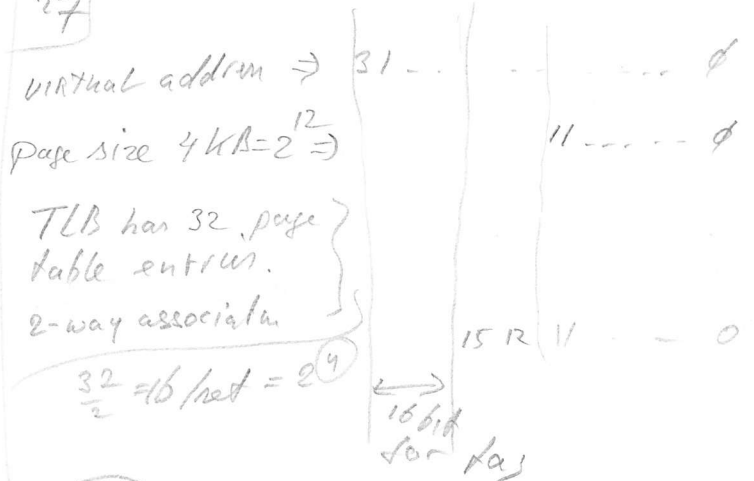 27
VIRTUAL addren ⇒ 31 - - - - - - - - - ∅
page size 4 KB = 2^12 ⇒ 11 - - - - - - ∅
TLB has 32 page
table entries.
2-way associatn 15 12 11 - - 0
32/2 = 16 /set = 2^4
16 bit
for tag